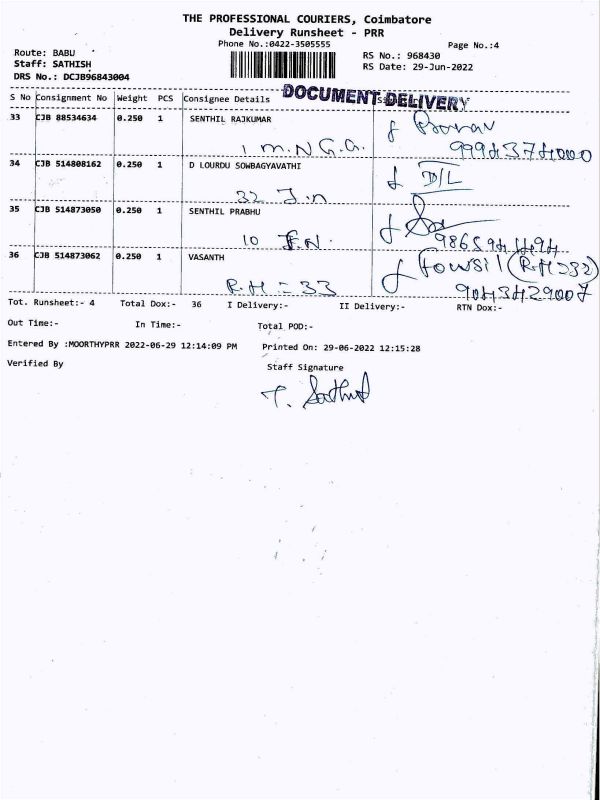 THE PROFESSIONAL COURIERS, Coimbatore
Delivery Runsheet - PRR
Phone No.:0422-3505555
Page No.:4
Route: BABU
Staff: SATHISH
DRS No.: DCJB96843004
RS No.: 968430
RS Date: 29-Jun-2022
S No Consignment No Weight PCS Consignee Details
DOCUMENT DELIVERY
33 CJB 88534634 0.250 1 SENTHIL RAJKUMAR
1 M.N G.G.
9994374000
34 CJB 514808162 0.250 1 D LOURDU SOWBAGYAVATHI
32 J.n
D/L
35 CJB 514873050 0.250 1 SENTHIL PRABHU
10
36 CJB 514873062 0.250 1 VASANTH
R.H = 33
Fowsil (R.H=32)
9043429007
Tot. Runsheet:- 4 Total Dox:- 36 I Delivery:- II Delivery:- RTN Dox:-
Out Time:- In Time:- Total POD:-
Entered By :MOORTHYPRR 2022-06-29 12:14:09 PM Printed On: 29-06-2022 12:15:28
Verified By Staff Signature
T. Sathish